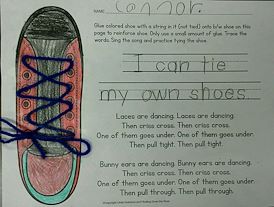 NAME: Connor.
Glue colored shoe with a string in it (not tied) onto b/w shoe on this
page to reinforce shoe. Only use a small amount of glue. Trace the
words. Sing the song and practice tying the shoe.
I can tie
my own shoes.
Laces are dancing. Laces are dancing.
Then criss cross. Then criss cross.
One of them goes under. One of them goes under.
Then pull tight. Then pull tight.
Bunny ears are dancing. Bunny ears are dancing.
Then criss cross. Then criss cross.
One of them goes under. One of them goes under.
Then pull through. Then pull through.